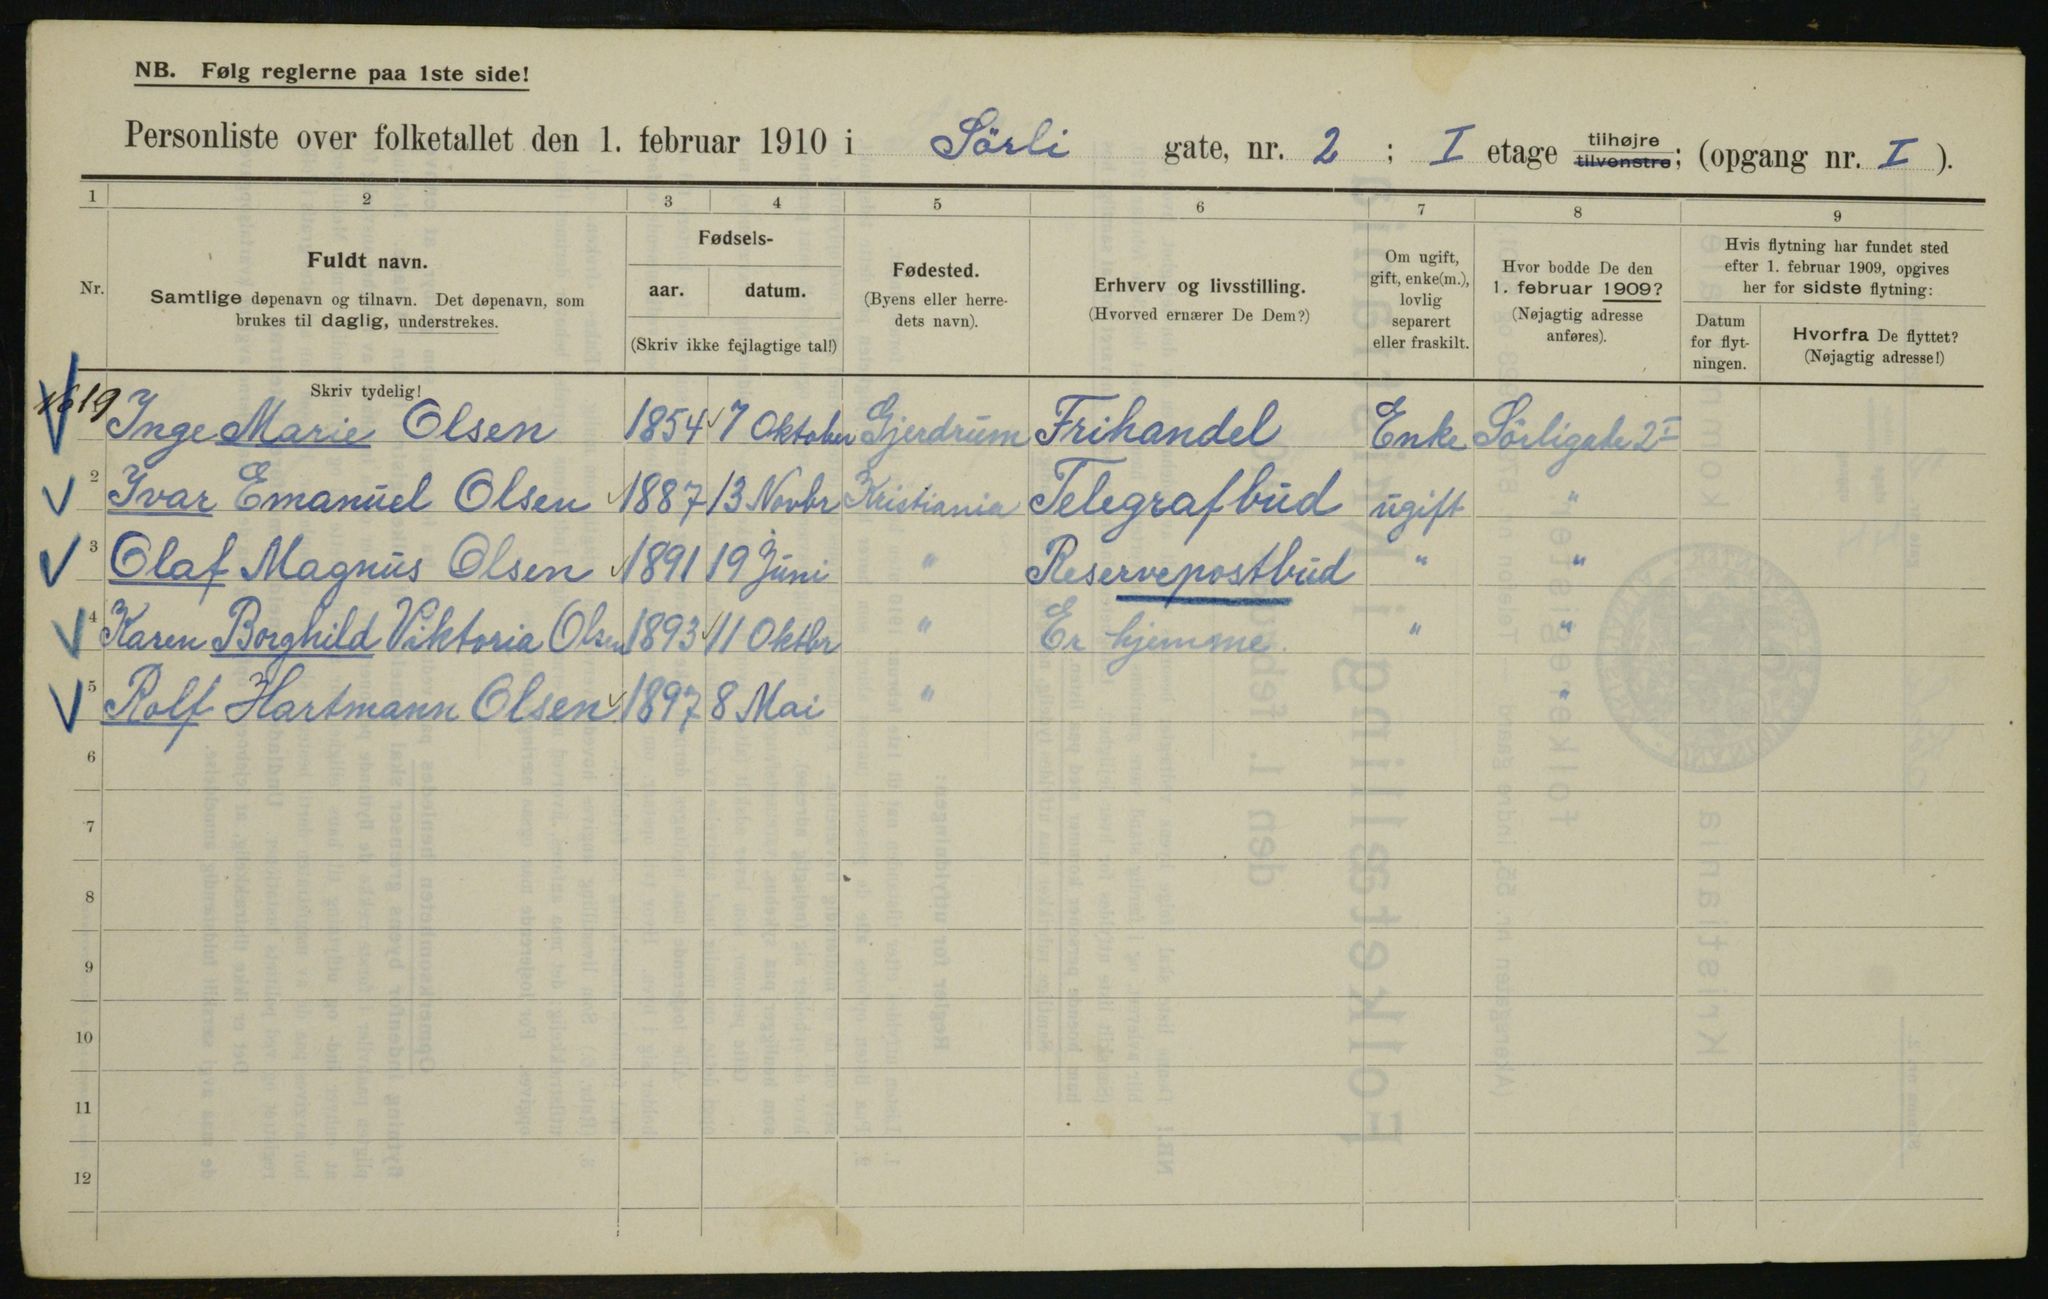 NB. Følg reglerne paa 1ste side!
Personliste over folketallet den 1. februar 1910 i Sörli gate, nr. 2 ; I etage tilhøjre tilvenstre; (opgang nr. I ).
1 2 3 4 5 6 7 8 9
Nr.
Fuldt navn.
Samtlige døpenavn og tilnavn. Det døpenavn, som
brukes til daglig, understrekes.
Fødsels-
aar. datum.
(Skriv ikke fejlagtige tal!)
Fødested.
(Byens eller herre-
dets navn).
Erhverv og livsstilling.
(Hvorved ernærer De Dem?)
Om ugift,
gift, enke(m.),
lovlig
separert
eller fraskilt.
Hvor bodde De den
1. februar 1909?
(Nøjagtig adresse
anføres).
Hvis flytning har fundet sted
efter 1. februar 1909, opgives
her for sidste flytning:
Datum
for flyt-
ningen.
Hvorfra De flyttet?
(Nøjagtig adresse!)
Skriv tydelig!
Inge Marie Olsen 1854 7 Oktober Gjerdrum Frihandel Enke Sörligate 2 I
2 Ivar Emanuel Olsen 1887 13 Novbr Kristiania Telegrafbud ugift "
3 Olaf Magnus Olsen 1891 19 Juni " Reservepostbud " "
4 Karen Borghild Viktoria Olsen 1893 11 Oktbr " Er hjemme. " "
5 Rolf Hartmann Olsen 1897 8 Mai " "
6
7
8
9
10
11
12